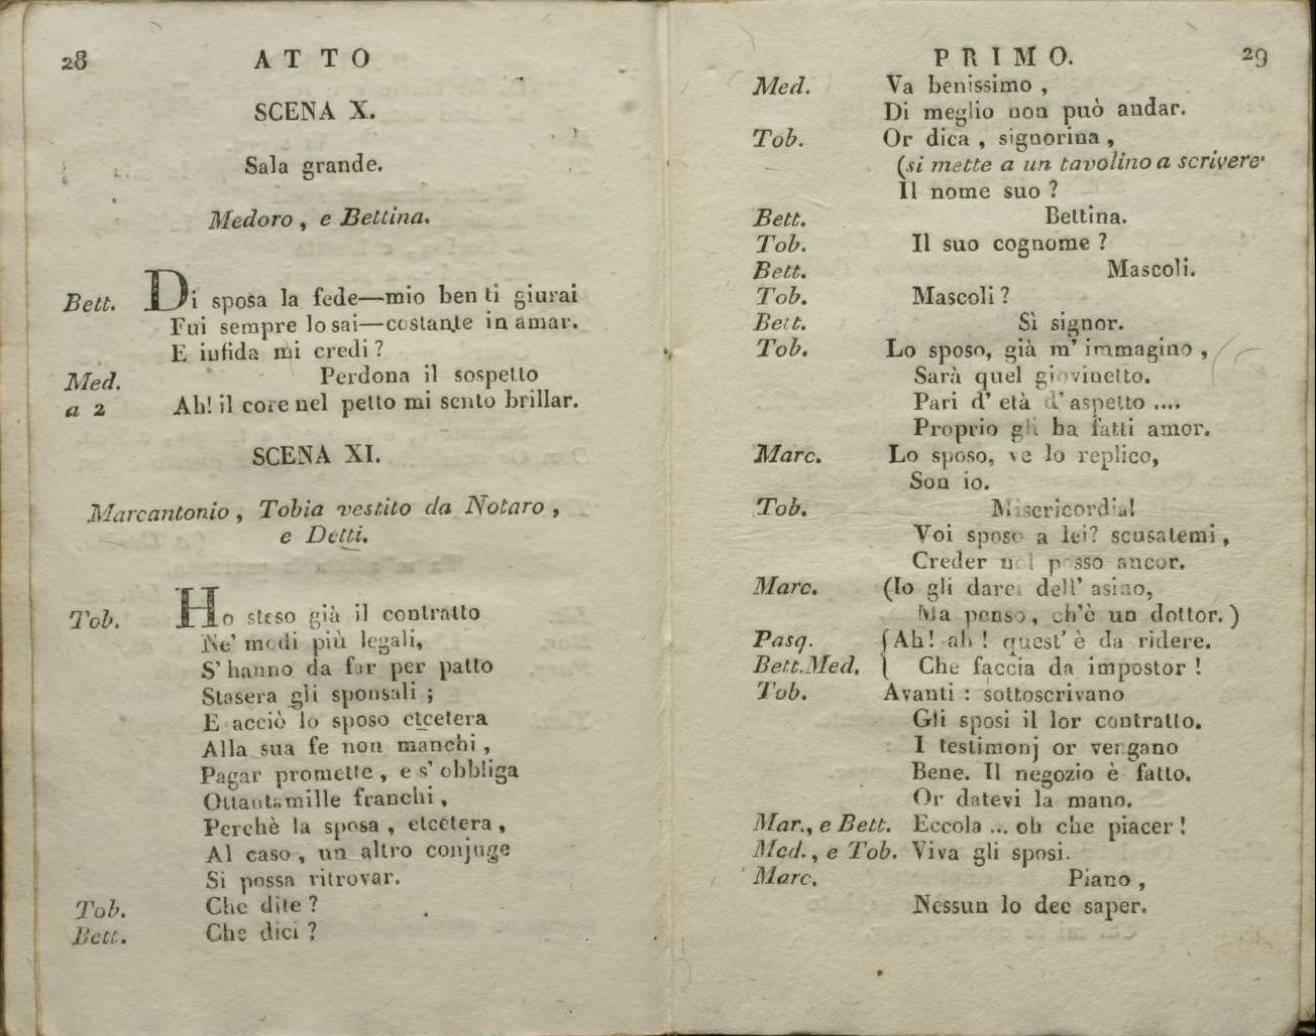 28
ATTO
SCENA X.
Sala grande.
Medoro, e Bettina.
Bett. Di sposa la fede—mio ben ti giurai
Fui sempre lo sai—costante in amar.
E infida mi credi?
Med. Perdona il sospetto
a 2 Ah! il core nel petto mi sento brillar.
SCENA XI.
Marcantonio, Tobia vestito da Notaro,
e Detti.
Tob. Ho steso già il contratto
Ne' modi più legali,
S' hanno da far per patto
Stasera gli sponsali;
E acciò lo sposo etcetera
Alla sua fe non manchi,
Pagar promette, e s' obbliga
Ottantamille franchi,
Perchè la sposa, etcetera,
Al caso, un altro conjuge
Si possa ritrovar.
Tob. Che dite?
Bett. Che dici?
PRIMO.
29
Med. Va benissimo,
Di meglio non può andar.
Tob. Or dica, signorina,
(si mette a un tavolino a scrivere
Il nome suo?
Bett. Bettina.
Tob. Il suo cognome?
Bett. Mascoli.
Tob. Mascoli?
Bett. Sì signor.
Tob. Lo sposo, già m' immagino,
Sarà quel giovinetto.
Pari d' età d' aspetto ....
Proprio gli ha fatti amor.
Marc. Lo sposo, ve lo replico,
Son io.
Tob. Misericordia!
Voi sposo a lei? scusatemi,
Creder nol posso ancor.
Marc. (Io gli darei dell' asino,
Ma penso, ch'è un dottor.)
Pasq. { Ah! ah! quest' è da ridere.
Bett. Med. { Che faccia da impostor!
Tob. Avanti: sottoscrivano
Gli sposi il lor contratto.
I testimonj or vengano
Bene. Il negozio è fatto.
Or datevi la mano.
Mar., e Bett. Eccola ... oh che piacer!
Med., e Tob. Viva gli sposi.
Marc. Piano,
Nessun lo dee saper.